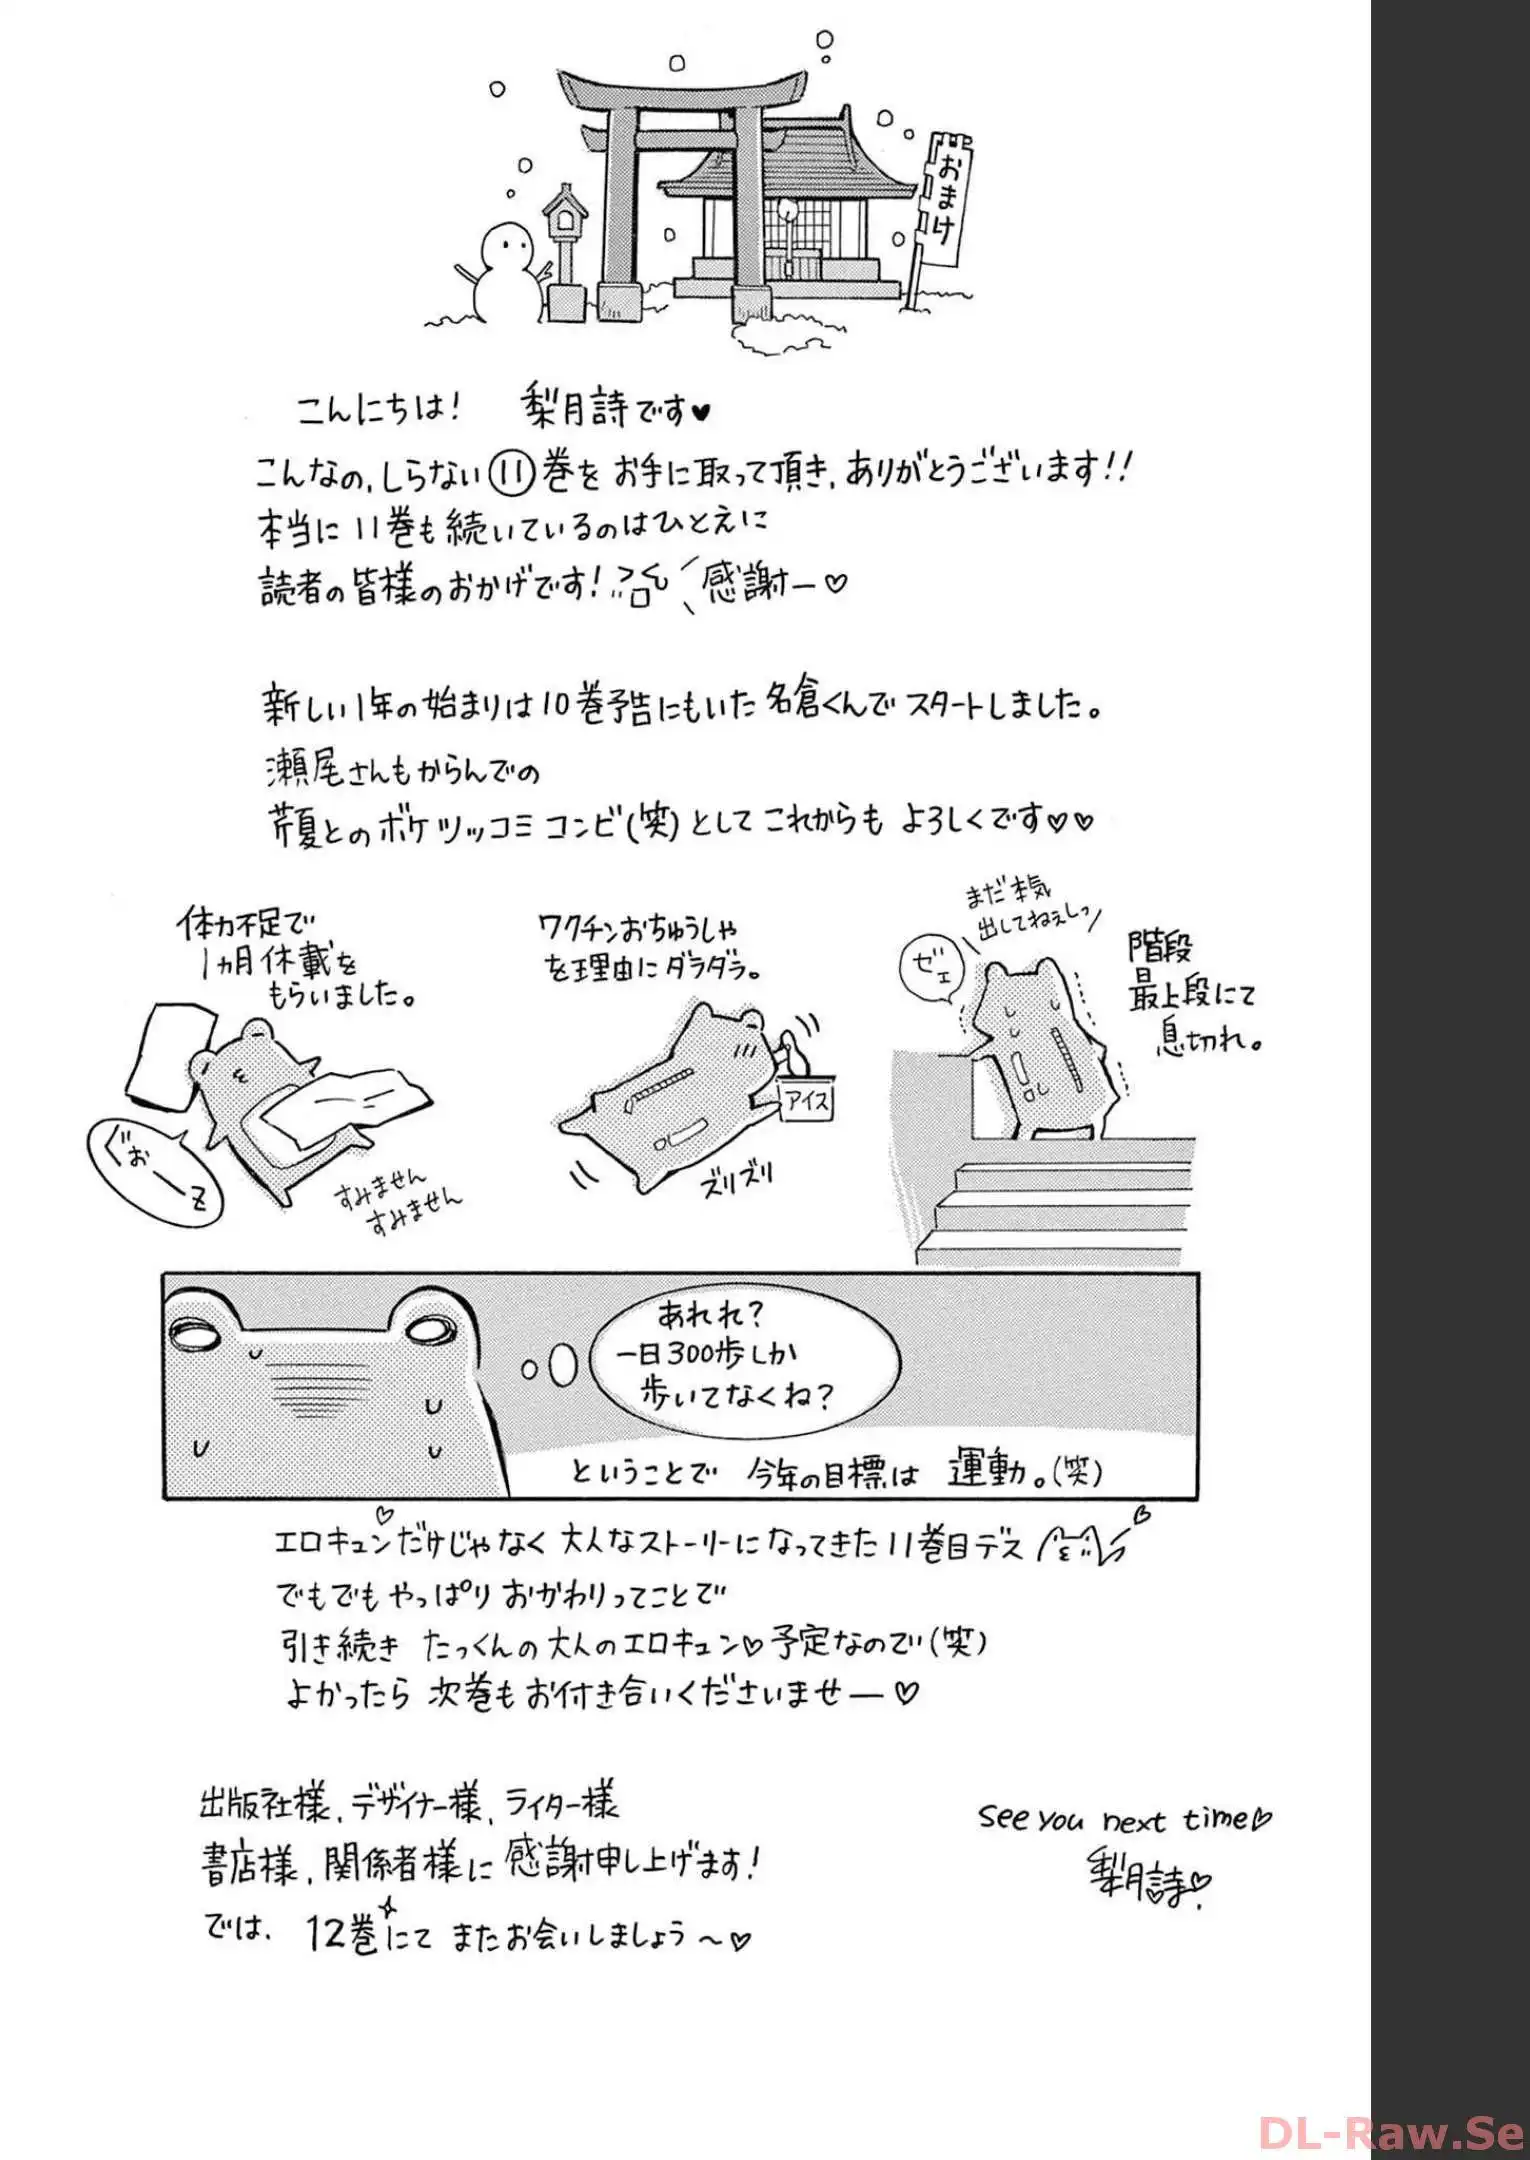 おまけ
こんにちは! 梨月詩です♥
こんなの、しらない⑪巻をお手に取って頂き、ありがとうございます!!
本当に11巻も続いているのはひとえに
読者の皆様のおかげです! 感謝ー♡
新しい1年の始まりは10巻予告にもいた名倉くんでスタートしました。
瀬尾さんもからんでの
芹夏とのボケツッコミコンビ(笑)としてこれからもよろしくです♡♡
体力不足で
1ヵ月休載を
もらいました。
ぐぉーz
すみません
すみません
ワクチンおちゅうしゃ
を理由にダラダラ。
アイス
ズリズリ
まだ本気
出してねぇしっ
ゼェ
階段
最上段にて
息切れ。
あれれ?
一日300歩しか
歩いてなくね?
ということで 今年の目標は 運動。(笑)
エロキュン♡だけじゃなく大人なストーリーになってきた11巻目デス
でもでもやっぱりおかわりってことで
引き続き たっくんの大人のエロキュン♡予定なので(笑)
よかったら 次巻もお付き合いくださいませー♡
出版社様、デザイナー様、ライター様
書店様、関係者様に感謝申し上げます!
では、12巻にてまたお会いしましょう~♡
see you next time♡
梨月詩♡
DL-Raw.Se